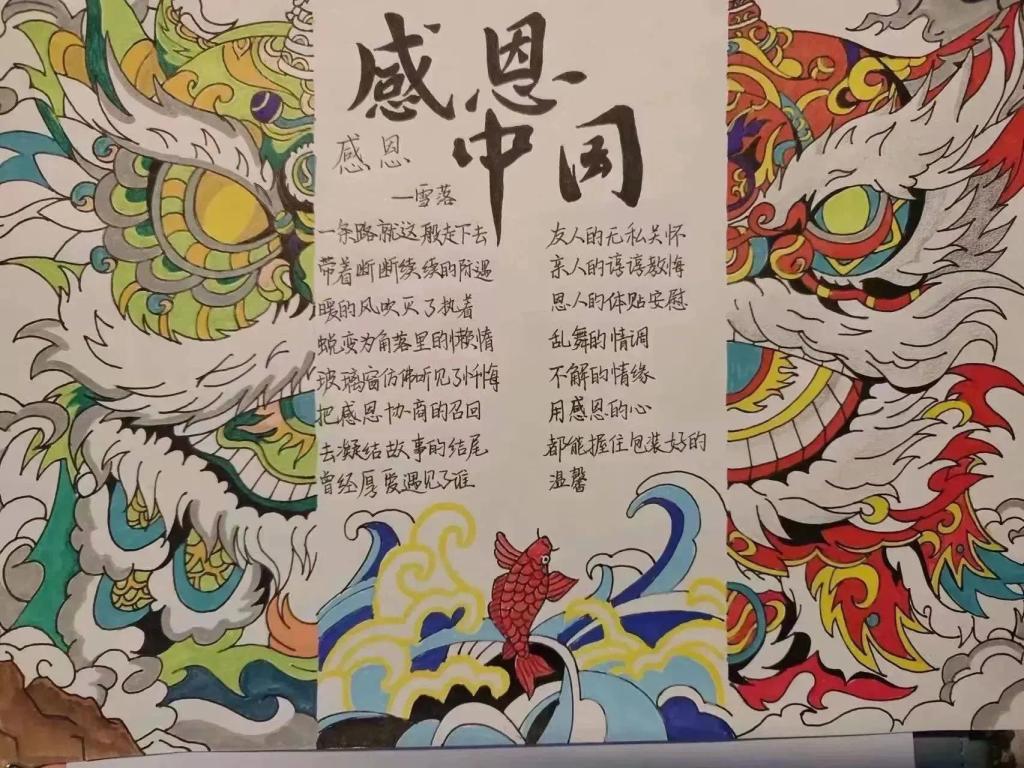 感恩
中国
感恩
—雪落
一条路就这般走下去
带着断断续续的际遇
暖的风吹灭了执着
蜕变为角落里的懒惰
玻璃窗仿佛听见了忏悔
把感恩协商的召回
去凝结故事的结尾
曾经厚爱遇见了谁
友人的无私关怀
亲人的谆谆教悔
恩人的体贴安慰
乱舞的情调
不解的情缘
用感恩的心
都能握住包装好的
温馨